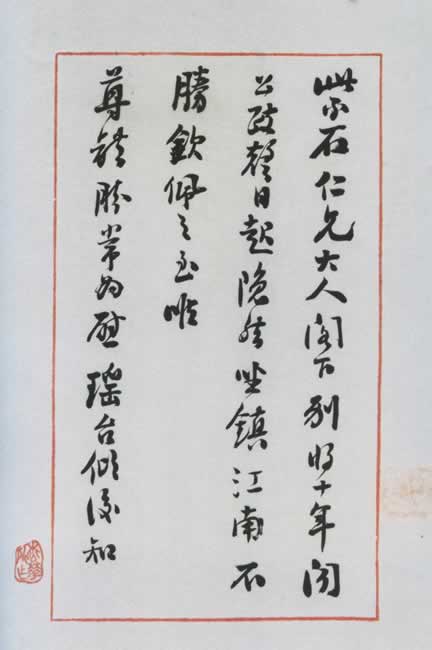 紫石仁兄大人閣下别將十年聞
公政聲日起隱然坐鎮江南不
勝欽佩之至唯
尊勝常为慰瑶台傾知